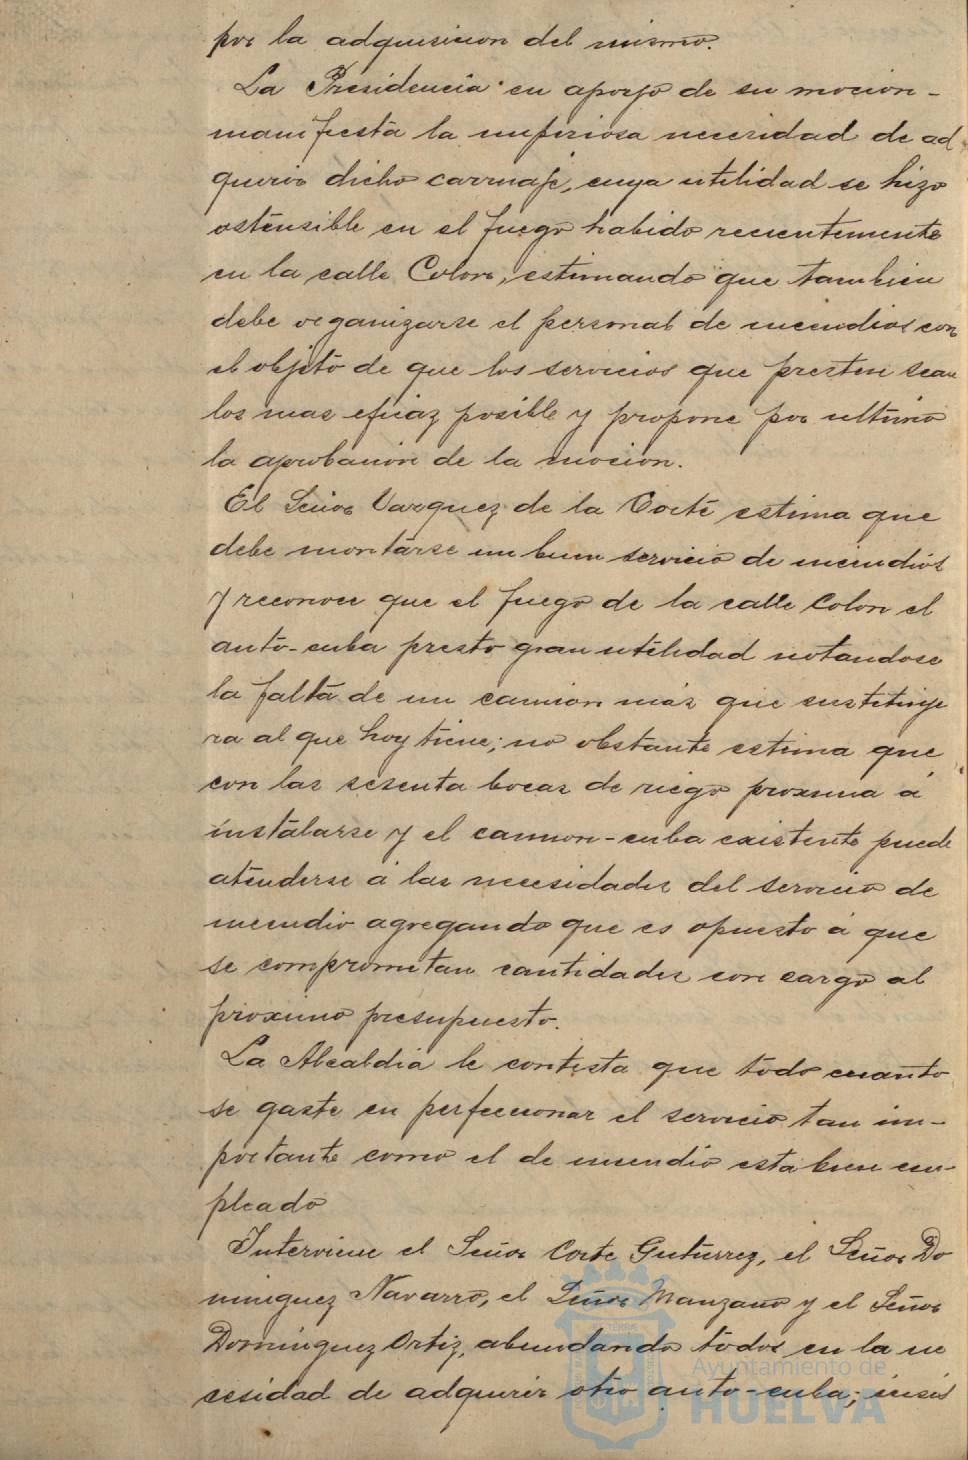 por la adquisicion del mismo.
La Presidencia en apoyo de su mocion-
manifiesta la imperiosa necesidad de ad
querir dicho carruaje, cuya utilidad se hizo
ostensible en el fuego habido recientemente
en la calle Colon, estimando que tambien
debe organizarse el personal de incendios con
el objeto de que los servicios que presten sean
los mas eficaz posible y propone por ultimo
la aprobacion de la mocion.
El Señor Vazquez de la Corte estima que
debe montarse un buen servicio de incendios
y reconoce que el fuego de la calle Colon el
auto-cuba presto gran utilidad notandose
la falta de un camion más que sustituye
ra al que hoy tiene; no obstante estima que
con las sesenta bocas de riego proxima á
instalarse y el camion-cuba existente puede
atenderse á las necesidades del servicio de
incendio agregando que es opuesto á que
se comprometan cantidades con cargo al
proximo presupuesto.
La Alcaldia le contesta que todo cuanto
se gaste en perfeccionar el servicio tan im-
portante como el de incendio esta bien em-
pleado
Interviene el Señor Corte Gutierrez, el Señor Do
minguez Navarro, el Señor Manzano y el Señor
Dominguez Ortiz, abundando todos en la ne
cesidad de adquirir otro auto-cuba; insis
Ayuntamiento de
HUELVA